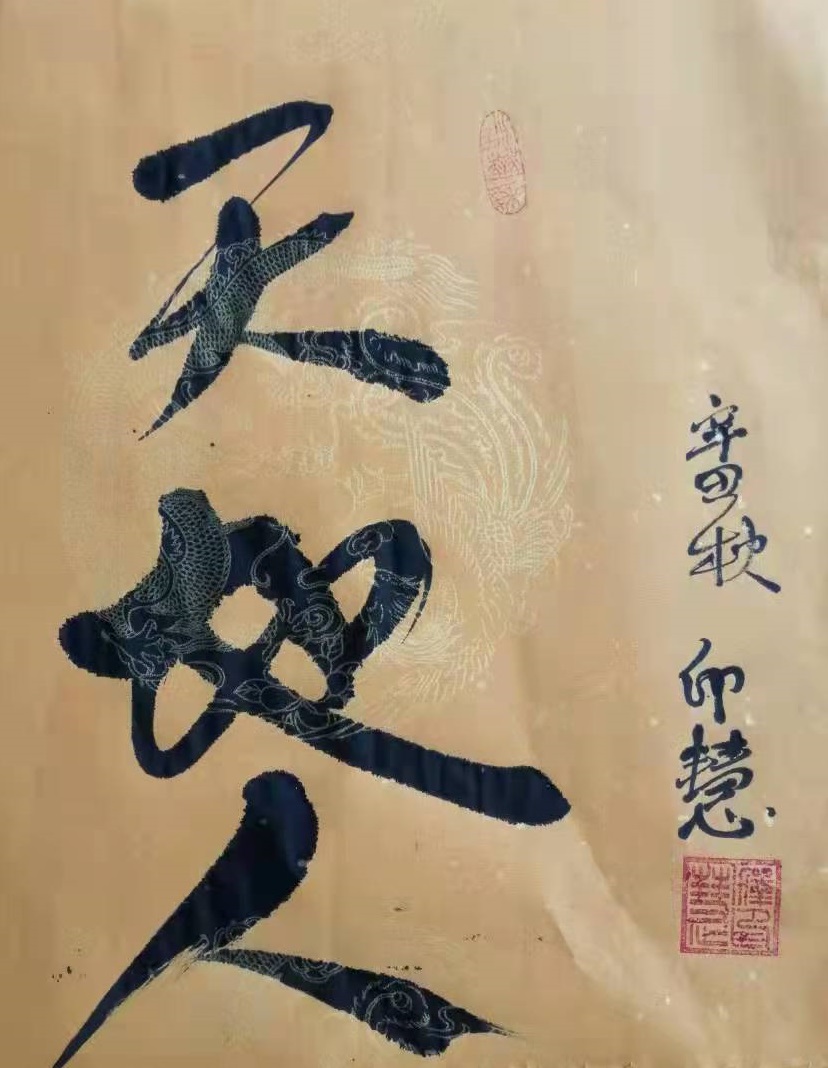 天地人
辛丑秋 印慧